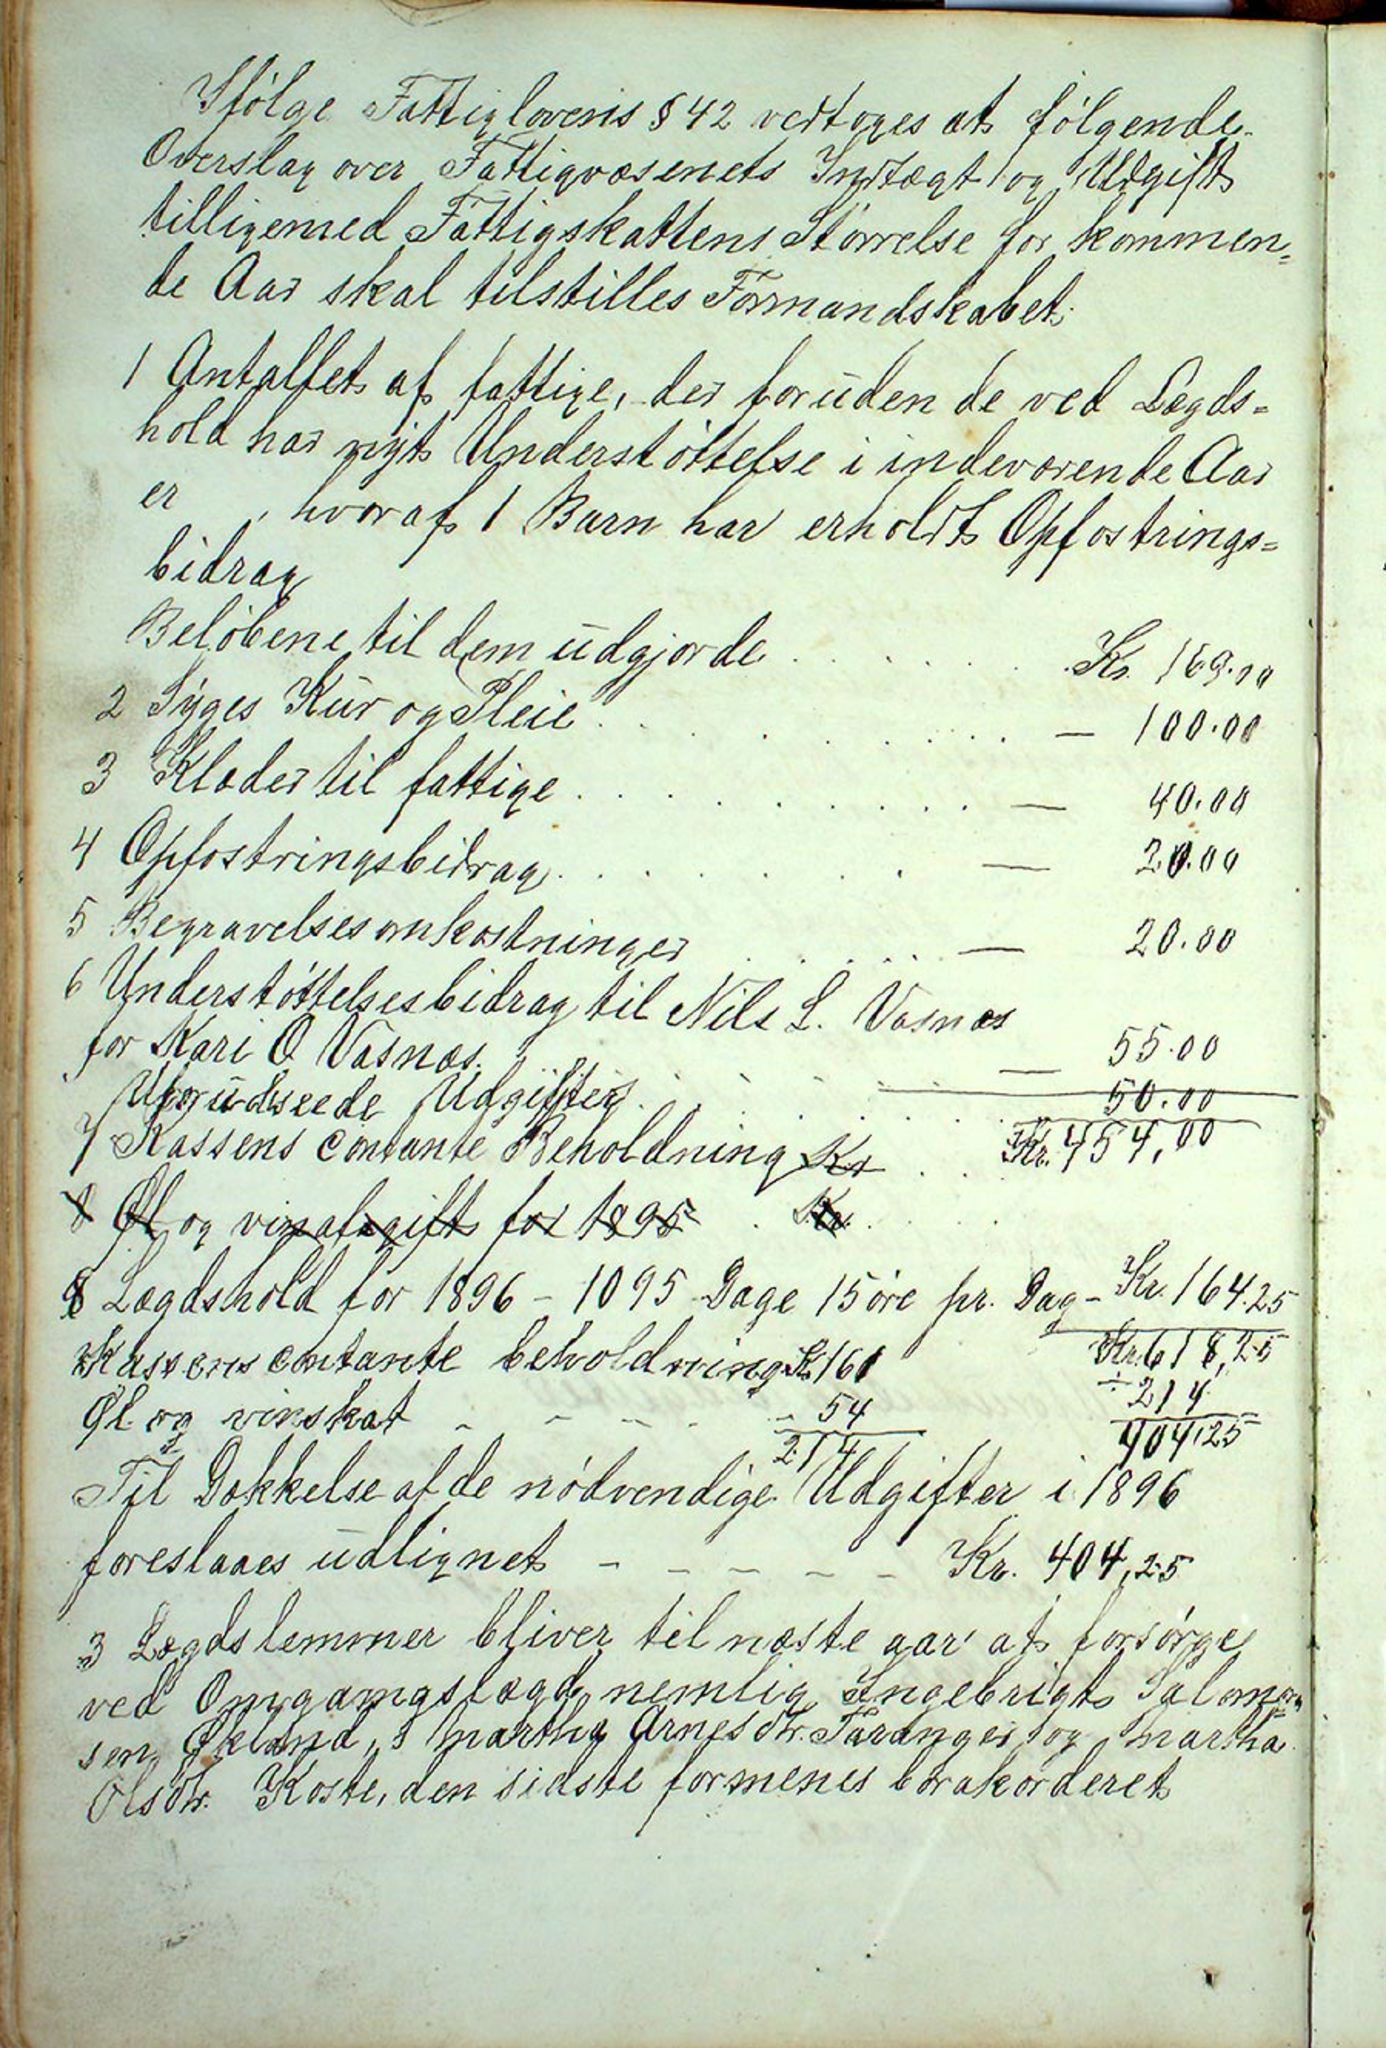 Ifölge Fattiglovens § 42 vedtoges at følgende
Overslag over Fattigvæsenets Indtægt og Udgift
tilligemed Fattigskattens Störrelse for kommen-
de Aar skal tilstilles Formandskabet.
1 Antallet af fattige, der foruden de ved Lægds-
hold har nydt Understöttelse i indeværende Aar
er , hvoraf 1 Barn har erholdt Opfostrings-
bidrag
Belöbene til dem udgjorde . . . . . . Kr. 169.00
2 Syges Kur og Pleie . . . . . . . — 100.00
3 Klæder til fattige . . . . . . . — 40.00
4 Opfostringsbidrag . . . . . . . — 20.00
5 Begravelsesomkostninger . . . . . — 20.00
6 Understöttelsesbidrag til Nils L. Vasnæs
for Kari O Vasnæs. — 55.00
Uforudseede Udgifter . . . . . . 50.00
7 Kassens contante Beholdning Kr . . Kr. 454,00
8 Øl og vinafgift for 1895 . Kr. . . .
8 Lægdshold for 1896 – 1095 Dage 15 öre pr. Dag – Kr. 164.25
Kassens contante beholdning Kr 160 Kr. 618,25
Øl og vinskat - - - - - 54 ÷ 214
214 404,25
Til Dækkelse af de nödvendige Udgifter i 1896
foreslaaes udlignet - - - - - Kr. 404,25
3 Lægdslemmer bliver til næste aar at forsörge
ved Omgangslægd, nemlig Ingebrigt Salomon
sen Økland, Martha Arnesdtr. Taranger og Martha
Olsdtr. Koste, den sidste formenes bortakorderet